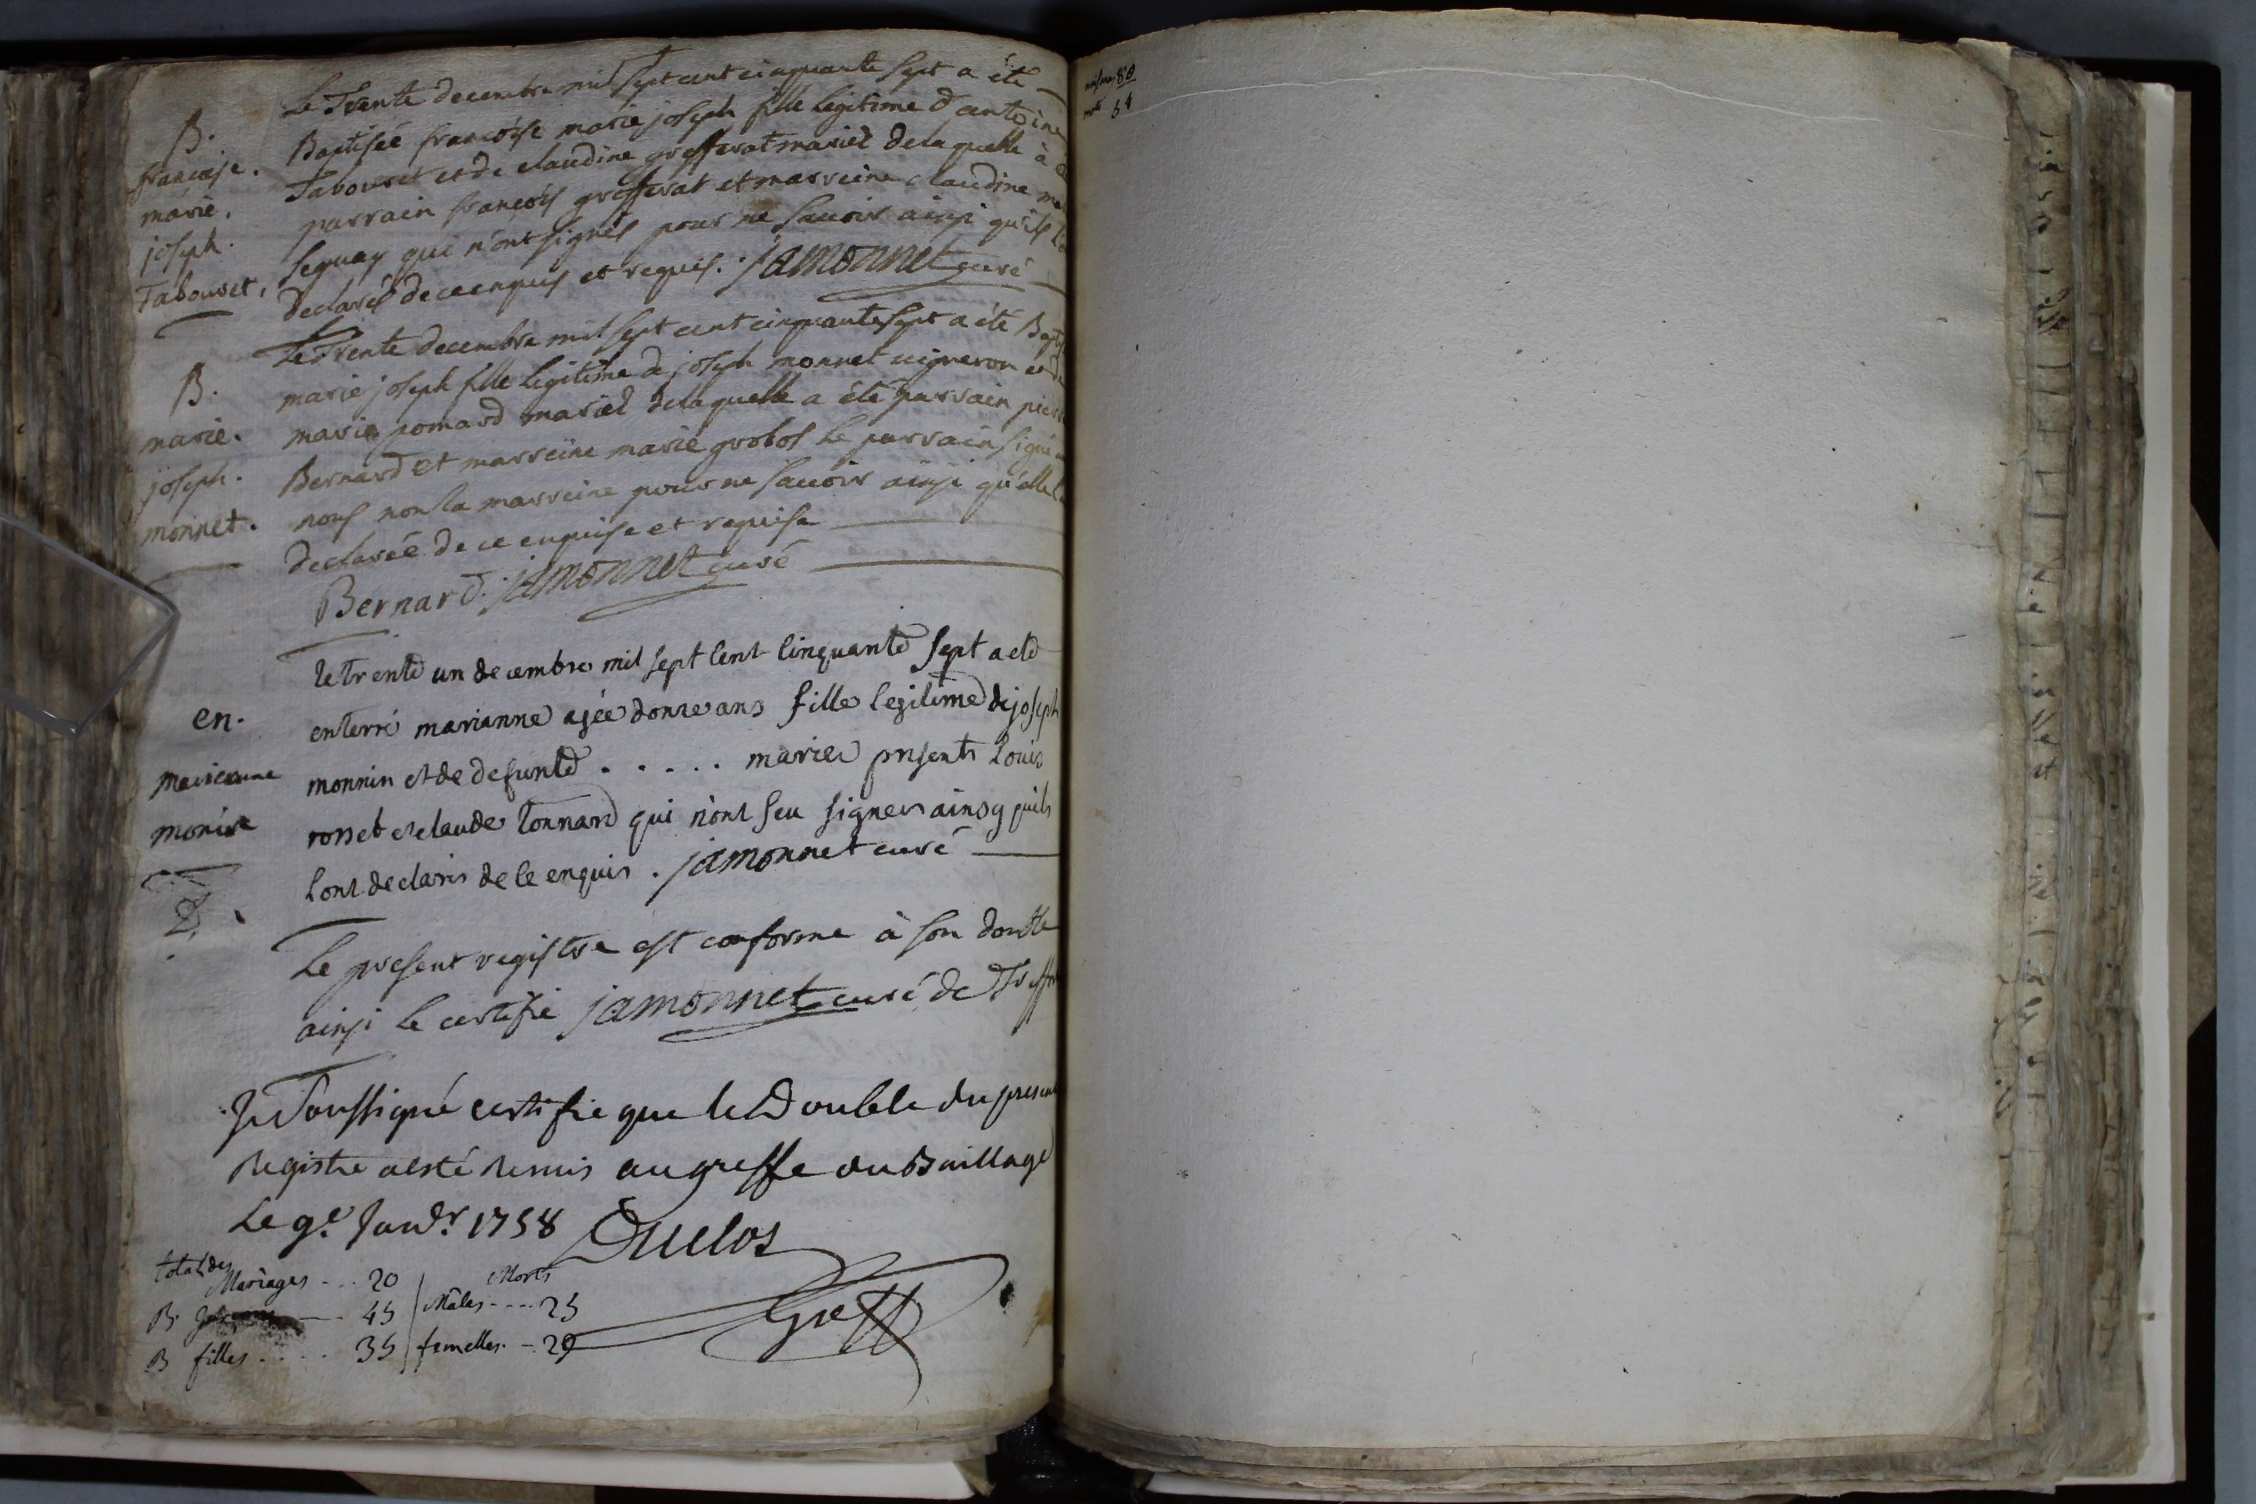 Le Trente decembre mil sept cent cinquante sept a été
B. Baptisée françoise marie joseph fille legitime d'antoine
françoise. Tabouret et de claudine grefferat mariés de laquelle à
marie. parrain françois grefferat et marreine claudine
joseph. seguay qui n'ont signés pour ne sauoir ainsi qu'ils
Tabouret, declarés de ce enquis et requis. jamonnet curé
Le Trente decembre mil sept cent cinquante sept a été
B. marie joseph fille legitime de joseph monnet uigneron et
marie. marie pomard mariés de laquelle a été parrain
joseph. Bernard et marreine marie grobos le parrain signé
monnet. nous non la marreine pour ne sauoir ainsi qu'elle
declarée de ce enquise et requise
Bernard. jamonnet curé
le trente un decembre mil sept cent cinquante sept a eté
en. enterré marianne agée donze ans fille legitime de joseph
marieanne monnin et de defunte . . . . . mariés presents Louis
rosset et claude Tonnard qui n'ont seu signer ainsy quils
Lont declarés de ce enquis. jamonnet curé
Le present registre est conforme à son double
ainsi le certifie jamonnet curé de
Je Soussigné certifie que le Double du present
Registre a esté remis au greffe du Baillage
Le 9.e Janv.r 1758 Duclos
Greff
total des Mariages - - - 20 Morts
B. 45 Mâles - - - - 25
B filles . . . . 35 femelles. - 29
88
54